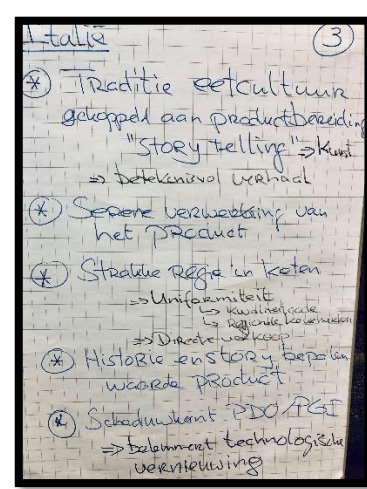 Italië ③
* Traditie eetcultuur
gekoppeld aan productbereiding
"Story telling" => Kunst
=> betekenisvol verhaal
* Serene verwerking van
het product
* Strakke Regie in keten
=> Uniformiteit
↳ Kwaliteit
↳ Regionale
=> Directe verkoop
* Historie en story bepalen
waarde product
* Schaduwkant PDO/PGI
=> belemmert technologische
vernieuwing